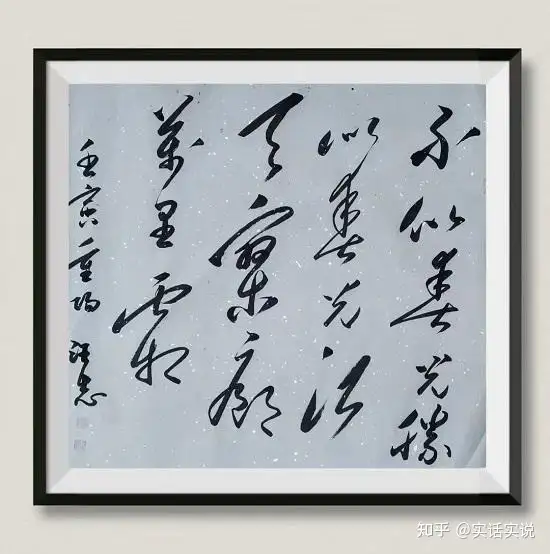 不似春光勝
似春光江
天寥廓
萬里霜
壬寅重陽 志
知乎 @实话实说